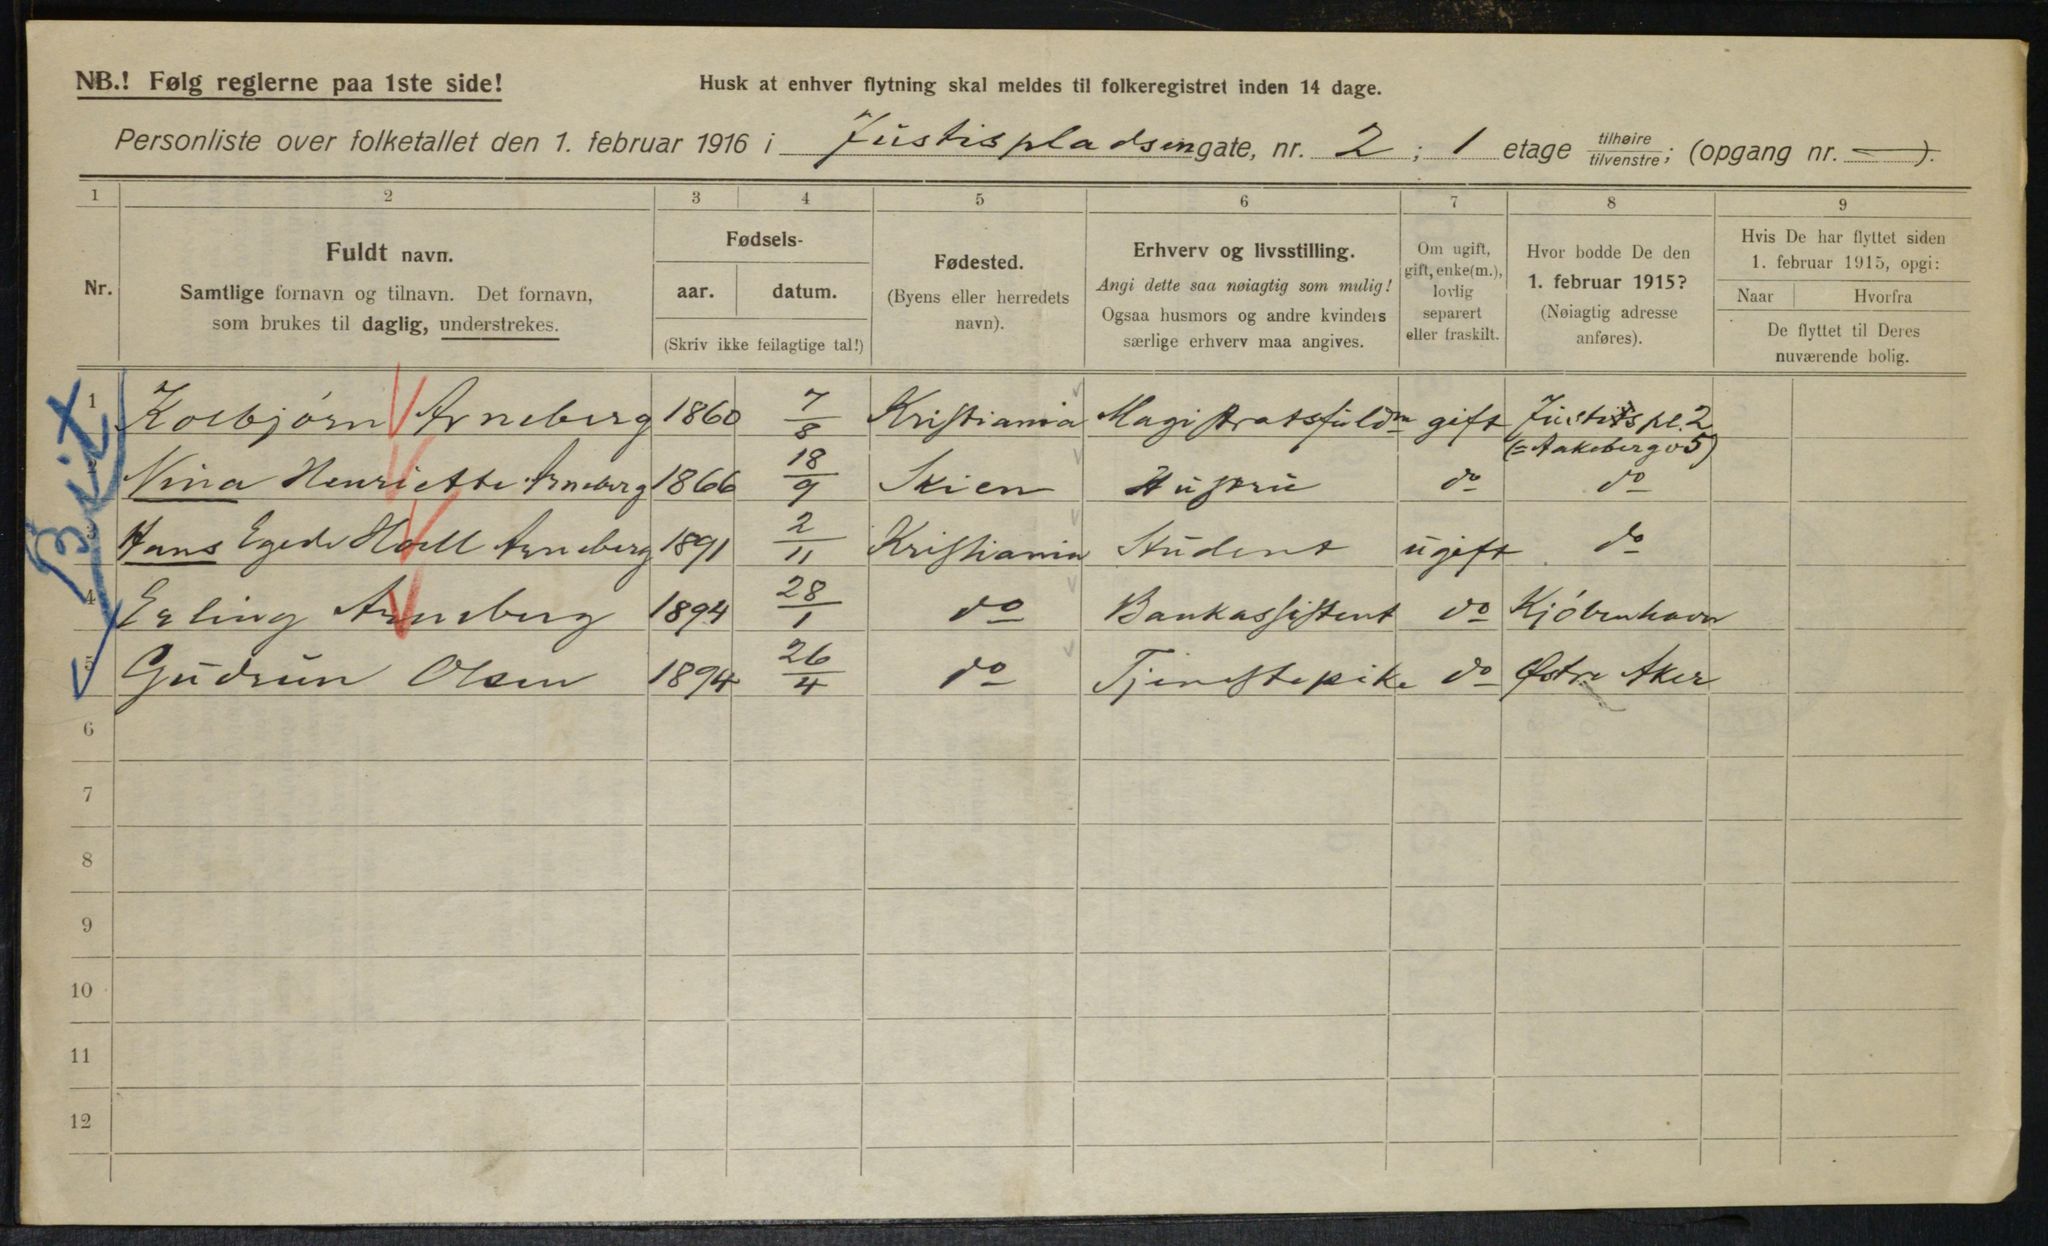 NB.! Følg reglerne paa 1ste side!
Husk at enhver flytning skal meldes til folkeregistret inden 14 dage.
Personliste over folketallet den 1. februar 1916 i Justispladsen gate, nr. 2; 1 etage tilhøire/tilvenstre; (opgang nr. —).
1 2 3 4 5 6 7 8 9
Nr.
Fuldt navn.
Samtlige fornavn og tilnavn. Det fornavn,
som brukes til daglig, understrekes.
Fødsels-
aar. datum.
(Skriv ikke feilagtige tal!)
Fødested.
(Byens eller herredets
navn).
Erhverv og livsstilling.
Angi dette saa nøiagtig som mulig!
Ogsaa husmors og andre kvinders
særlige erhverv maa angives.
Om ugift,
gift, enke(m.),
lovlig
separert
eller fraskilt.
Hvor bodde De den
1. februar 1915?
(Nøiagtig adresse
anføres).
Hvis De har flyttet siden
1. februar 1915, opgi:
Naar Hvorfra
De flyttet til Deres
nuværende bolig.
1 Kolbjørn Arneberg 1860 7/8 Kristiania Magistratsfuldm gift Justitspl. 2
(=Aakebergv 5)
2 Nina Henriette Arneberg 1866 18/9 Skien Hustru do do
3 Hans Egede Arneberg 1891 2/11 Kristiania Student ugift do
4 Erling Arneberg 1894 28/1 do Bankassistent do Kjöbenhavn
5 Gudrun Olsen 1894 26/4 do Tjenestepike do Østre Aker
6
7
8
9
10
11
12